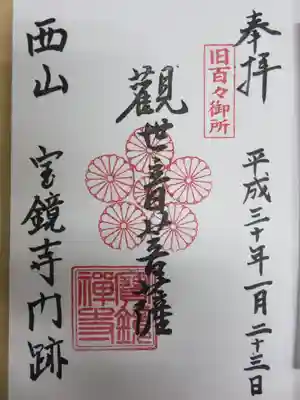 奉拝
平成三十年一月二十三日
旧百々御所
觀世音菩薩
寶鏡禅寺
西山
宝鏡寺門跡